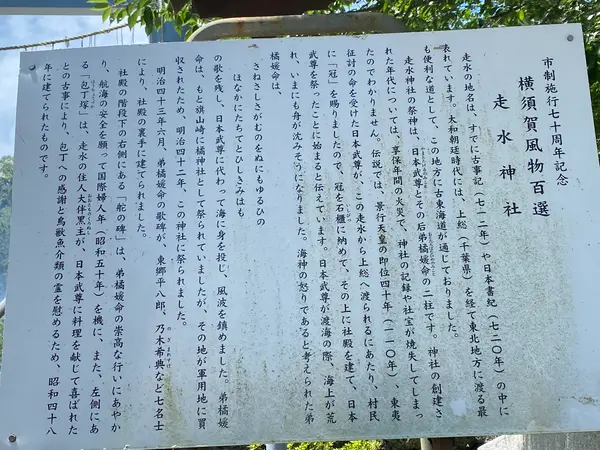 市制施行七十周年記念
横須賀風物百選
走水神社
走水の地名は、すでに古事記(七一二年)や日本書紀(七二〇年)の中に
表れています。大和朝廷時代には、上総(千葉県)を経て東北地方に渡る最
も便利な道として、この地方に古東海道が通じておりました。
走水神社の祭神は、日本武尊とその后弟橘媛命の二柱です。神社の創建さ
れた年代については、享保年間の火災で、神社の記録や社宝が焼失してしまっ
たのでわかりません。伝説では、景行天皇の即位四十年(一一〇年)、東夷
征討の命を受けた日本武尊が、この走水から上総へ渡られるにあたり、村民
に「冠」を賜りましたので、冠を石櫃に納めて、その上に社殿を建て、日本
武尊を祭ったことに始まると伝えています。日本武尊が渡海の際、海上が荒
れ、いまにも舟が沈みそうになりました。海神の怒りであると考えられた弟
橘媛命は、
さねさしさがむのをぬにもゆるひの
ほなかにたちてとひしきみはも
の歌を残し、日本武尊に代わって海に身を投じ、風波を鎮めました。弟橘媛
命は、もと旗山崎に橘神社として祭られていましたが、その地が軍用地に買
収されたため、明治四十二年、この神社に祭られました。
明治四十三年六月、弟橘媛命の歌碑が、東郷平八郎、乃木希典など七名士
により、社殿の裏手に建てられました。
社殿の階段下の右側にある「舵の碑」は、弟橘媛命の崇高な行いにあやか
り、航海の安全を願って国際婦人年(昭和五十年)を機に、また、左側にあ
る「包丁塚」は、走水の住人大伴黒主が、日本武尊に料理を献じて喜ばれた
との古事により、包丁への感謝と鳥獣魚介類の霊を慰めるため、昭和四十八
年に建てられたものです。